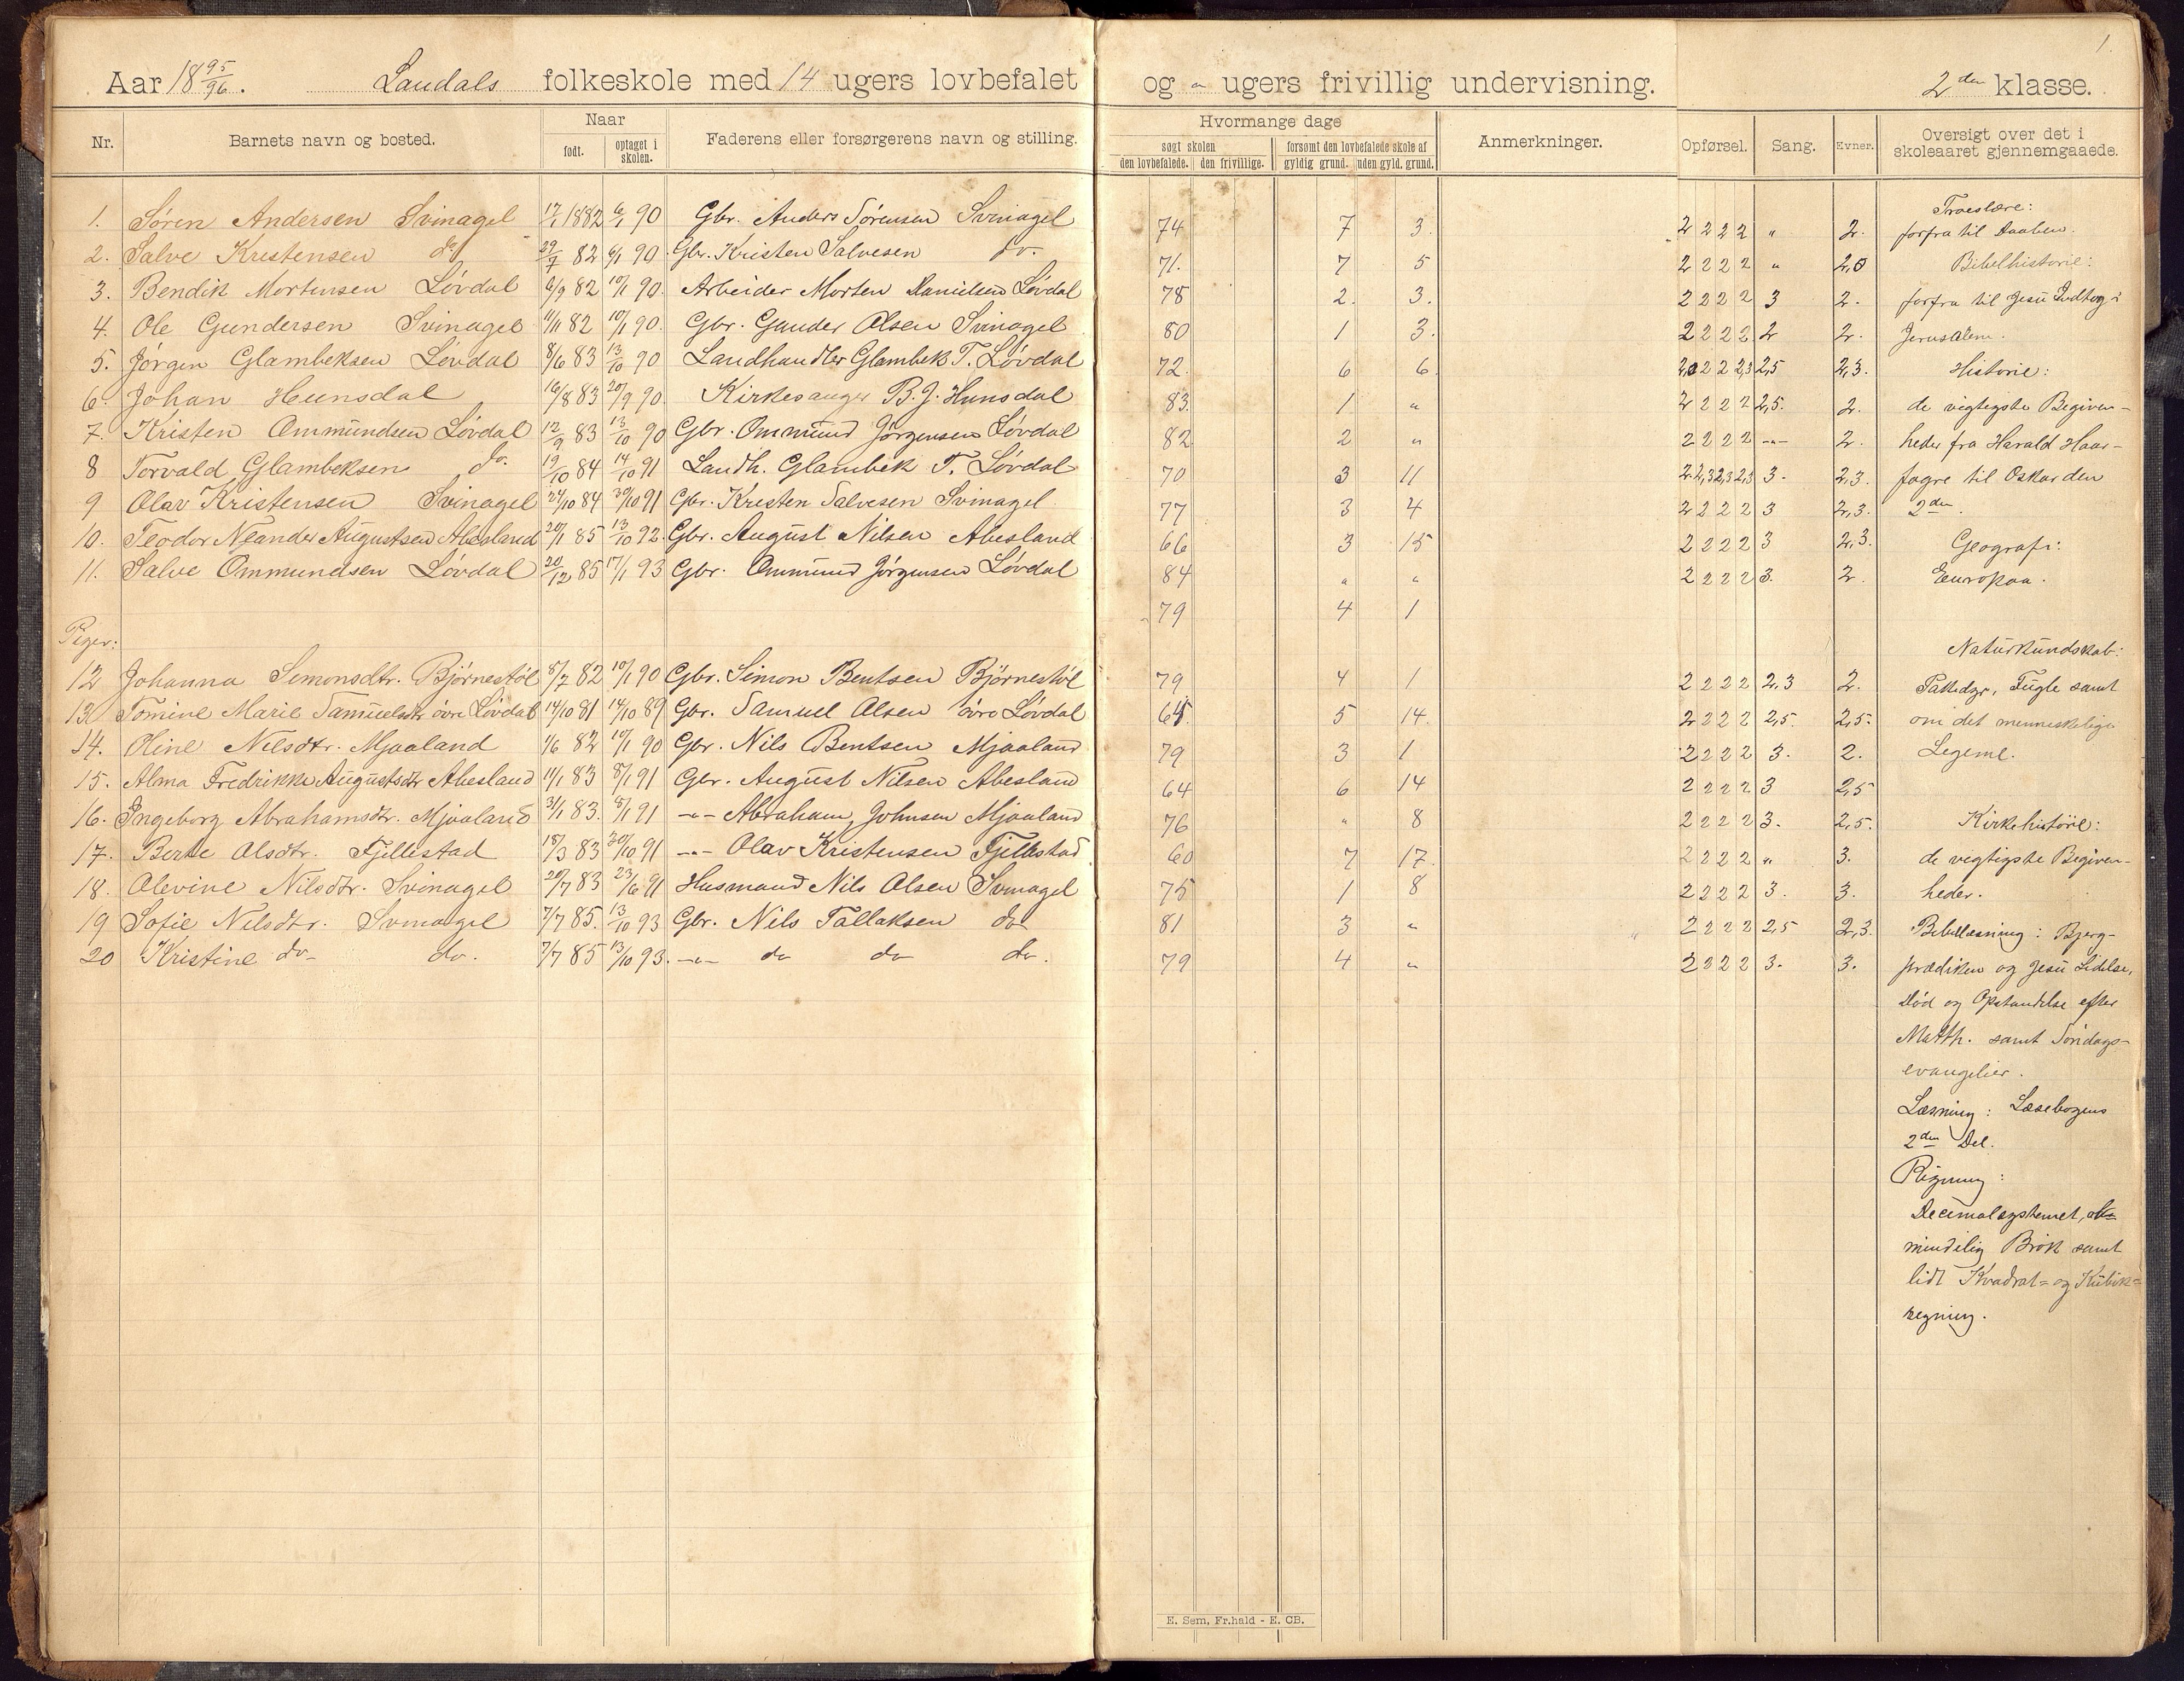 Aar 18 95/96. Laudals folkeskole med 14 ugers lovbefalet og " ugers frivillig undervisning. 2den klasse.
1.
Nr. Barnets navn og bosted. Naar født. optaget i skolen. Faderens eller forsørgerens navn og stilling. Hvormange dage søgt skolen den lovbefalede. den frivillige. forsømt den lovbefalede skole af gyldig grund. uden gyld. grund. Anmerkninger. Opførsel. Sang. Evner. Oversigt over det i skoleaaret gjennemgaaede.
Troeslære:
1. Søren Andersen Svinagel 17/1 1882 6/1 90 Gbr. Anders Sørensen Svinagel 74 7 3. 2 2 2 2 " 2. forfra til Daaben.
2. Salve Kristensen do 29/7 82 6/1 90 Gbr. Kristen Salvesen do. 71. 7 5 2 2 2 2 " 2,0 Bibelhistorie:
3. Bendik Mortensen Løvdal 6/9 82 10/1 90. Arbeider Morten Danielsen Løvdal 78 2. 3. 2 2 2 2 3 2. forfra til Jesu Indtog i
4. Ole Gundersen Svinagel 11/11 82 10/1 90. Gbr. Gunder Olsen Svinagel 80 1 3. 2 2 2 2 2 2. Jerusalem.
5. Jørgen Glambeksen Løvdal 8/6 83 13/10 90 Landhandler Glambek T. Løvdal 72. 6 6. 2,0 2 2 2,3 2,5 2,3. Historie:
6. Johan Hunsdal 16/8 83 20/9 90. Kirkesanger B. J. Hunsdal 83. 1 " 2 2 2 2 2,5. 2. de vigtigste Begiven-
7. Kristen Ommundsen Løvdal 12/9 83 13/10 90 Gbr. Ommund Jørgensen Løvdal 82 2 " 2 2 2 2 -"- 2. heder fra Harald Haar-
8 Torvald Glambeksen do. 19/10 84 14/10 91 Landh. Glambek T. Løvdal 70 3 11 2 2,3 2,3 2,3 3. 2,3. fagre til Oskar den
9 Olav Kristensen Svinagel 24/10 84 30/10 91 Gbr. Kristen Salvesen Svinagel 77 3 4 2 2 2 2 3 2,3. 2den.
10. Teodor Neander Augustsen Abesland 20/1 85 13/10 92. Gbr. August Nilsen Abesland 66 3 15 2 2 2 2 3 2,3. Geografi:
11. Salve Ommundsen Løvdal 20/12 85 17/1 93 Gbr. Ommund Jørgensen Løvdal 84 " " 2 2 2 2 3. 2. Europaa.
79 4 1
Piger:
Naturkundskab:
12 Johanna Simonsdtr. Bjørnestøl 8/7 82 10/1 90 Gbr. Simon Bentsen Bjørnestøl 79 4 1 2 2 2 2 2,3 2. Pattedyr, Fugle samt
13. Tomine Marie Samuelsdtr øvre Løvdal 14/10 81 14/10 89 Gbr. Samuel Olsen øvre Løvdal 65 5 14. 2 2 2 2 2,5. 2,5. om det menneskelige
14. Oline Nilsdtr. Mjaaland 1/6 82 10/1 90 Gbr. Nils Bentsen Mjaaland 79 3 1 2 2 2 2 3. 2. Legeme.
15. Alma Fredrikke Augustsdtr Abesland 11/1 83 8/1 91 Gbr. August Nilsen Abesland 64 6 14 2 2 2 2 3 2,5
16. Ingeborg Abrahamsdtr. Mjaaland 31/1 83. 8/1 91 -"- Abraham Johnsen Mjaaland 76 " 8 2 2 2 2 3. 2,5. Kirkehistorie:
17. Berte Olsdtr. Fjellestad 18/3 83 30/10 91 -"- Olav Kristensen Fjellestad 60 7 17. 2 2 2 2 " 3. de vegtigste Begiven-
18. Olevine Nilsdtr. Svinagel 20/7 83 23/6 91 Husmand Nils Olsen Svinagel 75 1 8 2 2 2 2 3. 3. heder.
19 Sofie Nilsdtr. Svinagel 7/7 85. 13/10 93 Gbr. Nils Tallaksen do 81 3 " 2 2 2 2 2,5 2,3. Bibellæsning: Bjerg-
20 Kristine do- do. 7/7 85 13/10 93. -"- do do do. 79 4 " 2 2 2 2 3. 3. prædiken og Jesu Lidelse,
Død og Opstandelse efter
Matth. samt Søndags-
evangelier.
Læsning: Læsebogens
2den Del.
Regning:
Decimalsystemet, al-
mindelig Brøk samt
lidt Kvadrat- og Kubik-
regning.
E. Sem, Fr.hald - E. CB.